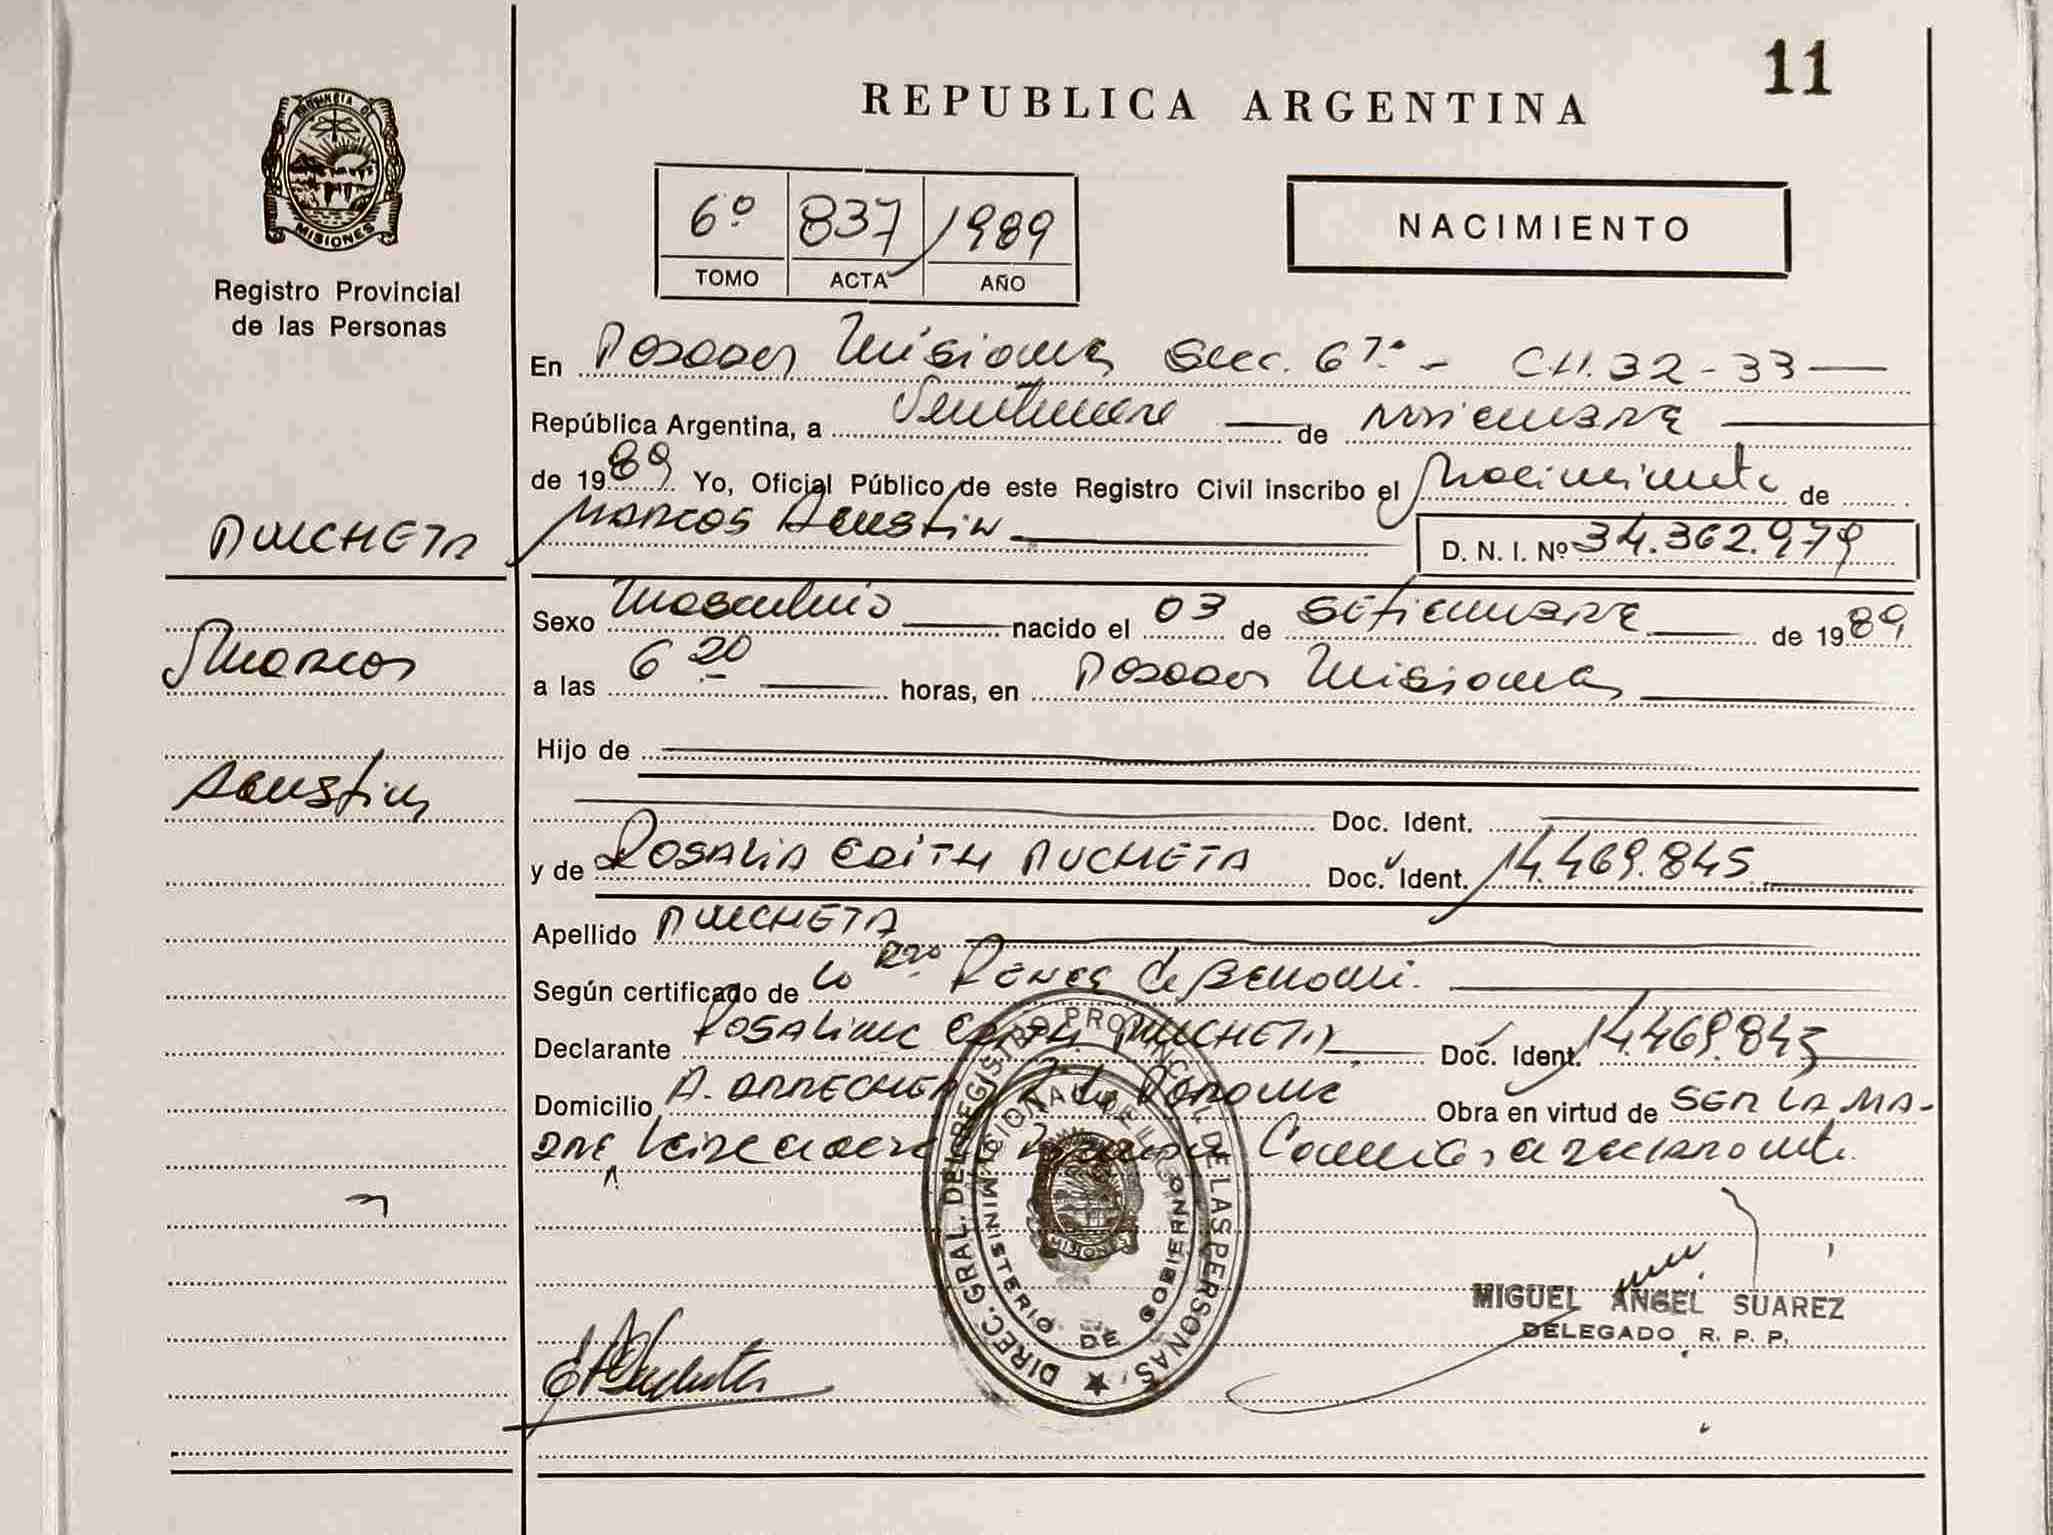 11
REPUBLICA ARGENTINA
PROVINCIA DE
MISIONES
Registro Provincial
de las Personas
6º 837 1989
TOMO ACTA AÑO
NACIMIENTO
En Posadas Misiones Secc. 67.a - CH. 32-33
República Argentina, a Veintinueve de Noviembre
de 1989 Yo, Oficial Público de este Registro Civil inscribo el Nacimiento de
AUCHETA
MARCOS AGUSTIN D. N. I. Nº 34.362.979
Sexo Masculino nacido el 03 de SETIEMBRE de 1989
Marcos
a las 6 20 horas, en Posadas Misiones
Hijo de
Agustin
Doc. Ident.
y de ROSALIA EDITH AUCHETA Doc. Ident. 14.469.845
Apellido AUCHETA
Según certificado de
Declarante EDITH AUCHETA Doc. Ident. 14.469.845
Domicilio A. Obra en virtud de SER LA MA-
DRE
DIREC. GRAL. DEL REGISTRO PROVINCIAL DE LAS PERSONAS
MINISTERIO DE GOBIERNO
MISIONES
MIGUEL ANGEL SUAREZ
DELEGADO R. P. P.